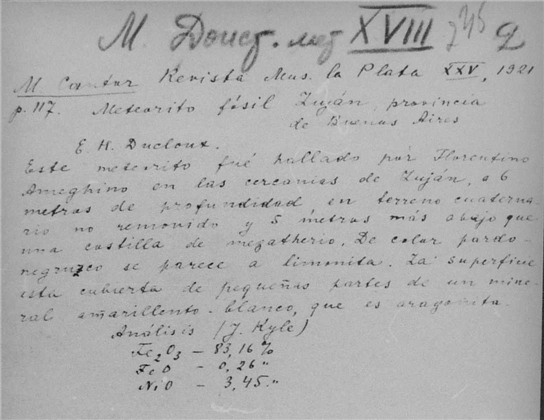 M. Doueg. мет XVIII 2
M Cantor Revista Mus. la Plata XXV, 1921
p. 117. Meteorito fósil Zuján, provincia
de Buenos Aires
E. H. Ducloux.
Este meteorito fué hallado por Florentino
Ameghino en las cercanias de Zuján, a 6
metros de profundidad en terreno cuaterna-
rio no removido y 5 metros más abajo que
una costilla de megatherio. De color pardo-
negruzco se parece a limonita. La superficie
esta cubierta de pequeñas partes de un mine-
ral amarillento-blanco, que es aragonita.
Análisis (J. Kyle)
Fe2O3 — 83,16%
FeO — 0,26 "
NiO — 3,45 "